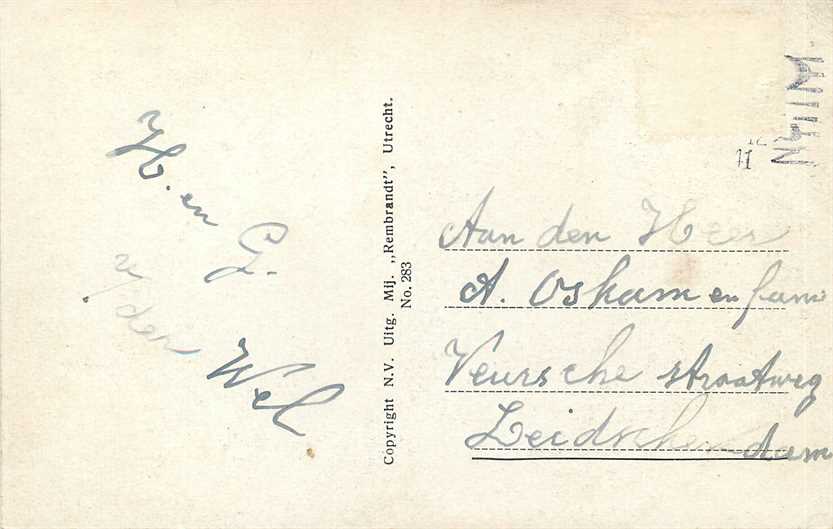 H. en G.
v/den Wel
Copyright N.V. Uitg. Mij. „Rembrandt”, Utrecht.
No. 283
Aan den Heer
A. Oskam en fam
Veursche straatweg
Leidschendam